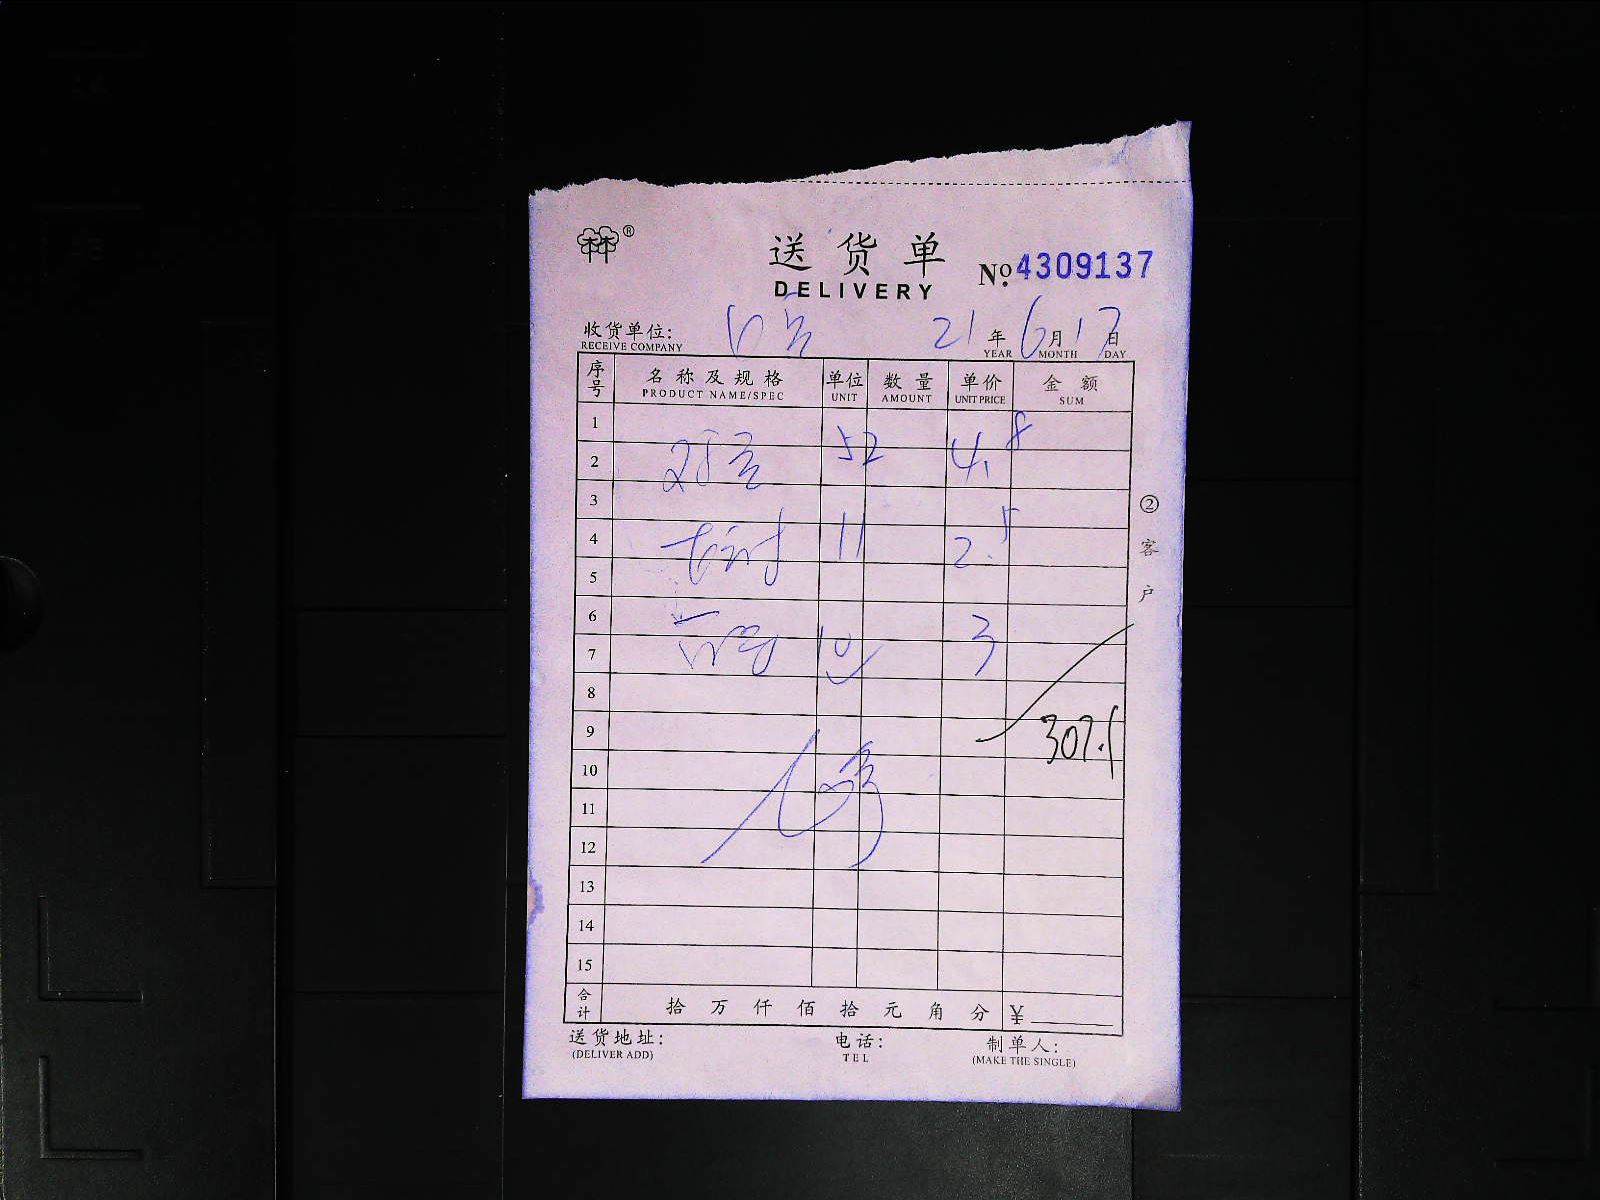 林®
送货单
DELIVERY
No. 4309137
收货单位:
RECEIVE COMPANY
21年6月17日
YEAR MONTH DAY
序号 名称及规格 单位 数量 单价 金额
PRODUCT NAME/SPEC UNIT AMOUNT UNIT PRICE SUM
1
2 52 4.8
3
4 11 2.5
5
6
7 10 3
8
9 307.1
10
11
12
13
14
15
合计 拾万仟佰拾元角分 ¥
②客户
送货地址: 电话: 制单人:
(DELIVER ADD) TEL (MAKE THE SINGLE)